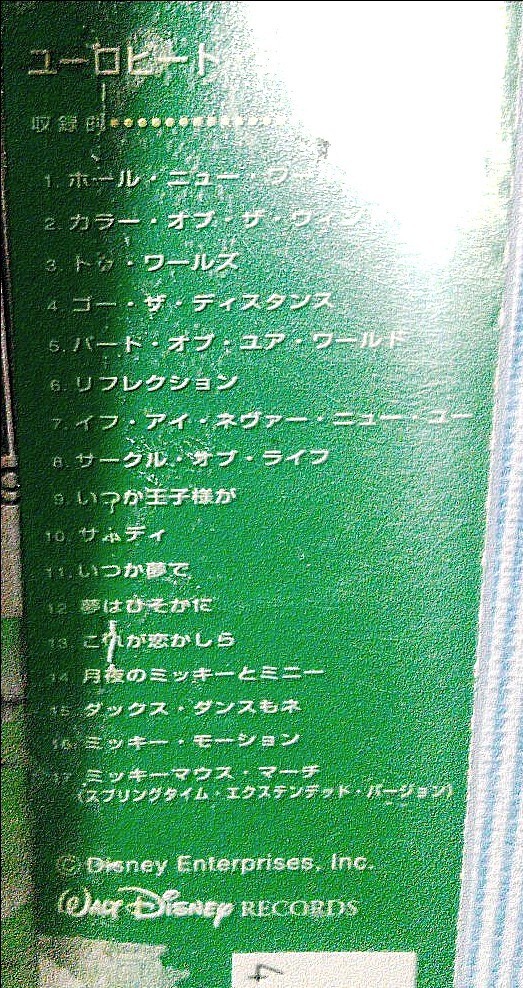 ユーロビート
収録曲
1. ホール・ニュー・ワー
2. カラー・オブ・ザ・ウィン
3. トゥ・ワールズ
4. ゴー・ザ・ディスタンス
5. パート・オブ・ユア・ワールド
6. リフレクション
7. イフ・アイ・ネヴァー・ニュー・ユー
8. サークル・オブ・ライフ
9. いつか王子様が
10. サ・ディ
11. いつか夢で
12. 夢はひそかに
13. これが恋かしら
14. 月夜のミッキーとミニー
15. ダックス・ダンスもネ
16. ミッキー・モーション
17. ミッキーマウス・マーチ
(スプリングタイム・エクステンデッド・バージョン)
© Disney Enterprises, Inc.
WALT DISNEY RECORDS
4